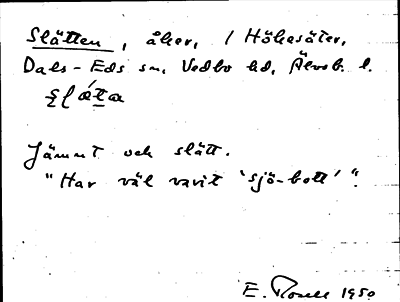 Slätten, åker, i Håkesäter,
Dals-Eds sn, Vedbo hd, Älvsb. l.
slǽta
Jämnt och slätt.
"Har väl varit 'sjö-bott'".
E. 1950